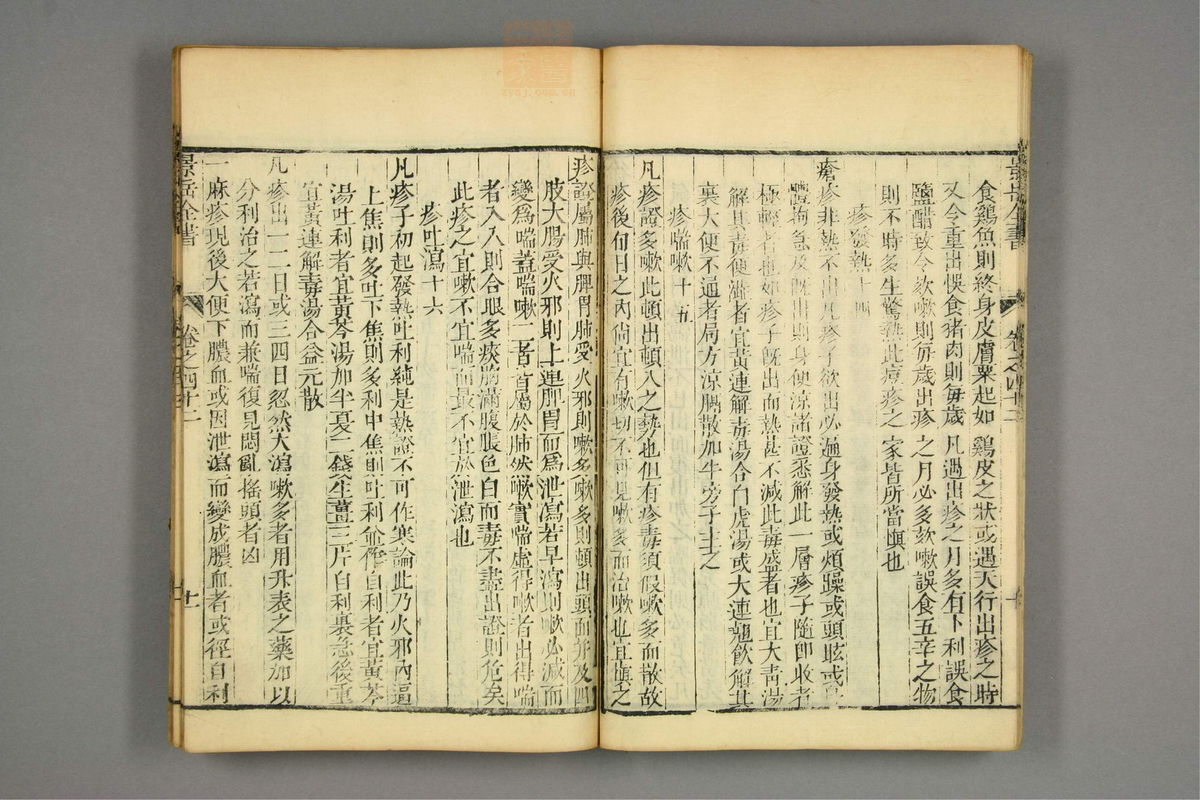 食鷄魚則終身皮膚粟起如鷄皮之狀或遇天行出疹之時
又令重出悞食猪肉則每歲凡遇出疹之月多有下利誤食
鹽醋致令欬嗽則毎歲出疹之月必多欬嗽誤食五辛之物
則不時多生驚熱此痘疹之家皆所當愼也
疹發熱十四
瘡疹非熱不出凡疹子欲出必遍身發熱或煩躁或頭眩或身
體拘急及旣出則身便涼諸證悉解此一層疹子隨即收者
極輕者也如疹子旣出而熱甚不減此毒盛者也宜大青湯
解其毒便澁者宜黃連解毒湯合白虎湯或大連翹飲解其
裏大便不通者局方涼膈散加牛旁子主之
疹喘嗽十五
凡疹證多嗽此頓出頓入之勢也但有疹毒須假嗽多而散故
疹後旬日之內倘宜有嗽切不可見嗽多而治嗽也宜愼之
疹證屬肺與脾胃肺受火邪則嗽多嗽多則頓出頭面并及四
肢大腸受火邪則上連脾胃而爲泄瀉若早瀉則嗽必減而
變爲喘蓋喘嗽二者皆屬於肺然嗽實喘虛得嗽者出得喘
者入入則合眼多痰胸滿腹脹色白而毒不盡出證則危矣
此疹之宜嗽不宜喘而最不宜於泄瀉也
疹吐瀉十六
凡疹子初起發熱吐利純是熱證不可作寒論此乃火邪內逼
上焦則多吐下焦則多利中焦則吐利並作自利者宜黃芩
湯吐利者宜黃芩湯加半夏二錢生薑三片自利裏急後重
宜黃連解毒湯合益元散
凡疹出一二日或三四日忽然大瀉嗽多者用升表之藥加以
分利治之若瀉而兼喘復見悶亂搖頭者凶
一麻疹現後大便下膿血或因泄瀉而變成膿血者或徑自利
景岳全書
卷之四十三
景岳全書
卷之四十三